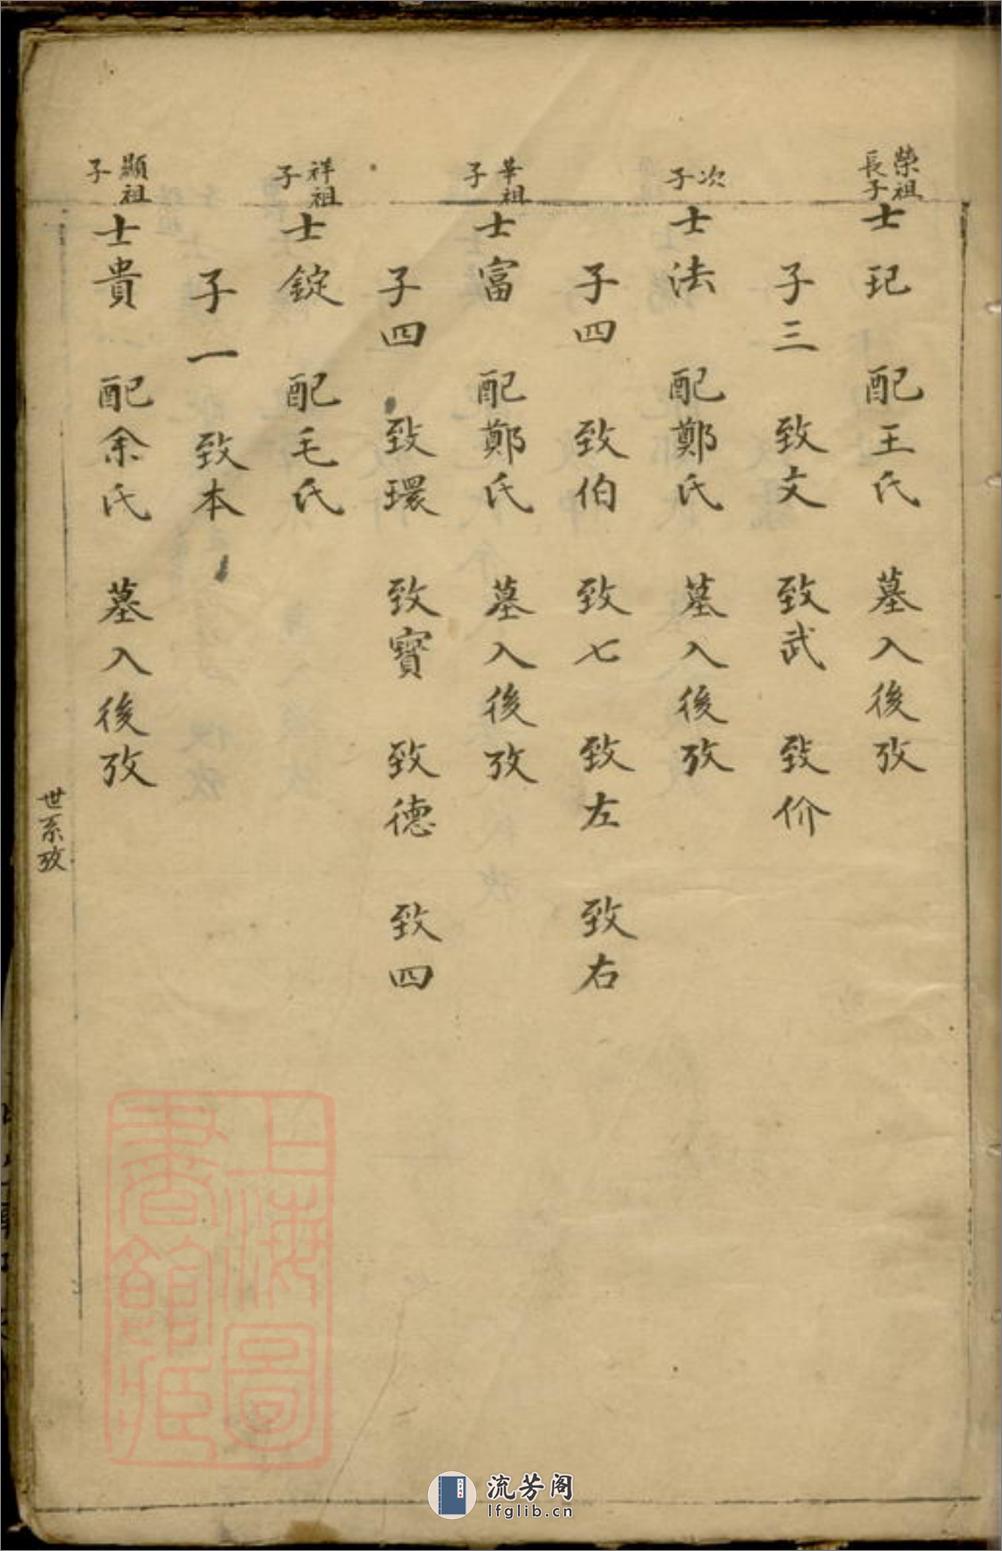 榮祖長子
士玘 配王氏 墓入後攷
子三 致文 致武 致价
次子
士法 配鄭氏 墓入後攷
子四 致伯 致七 致左 致右
華祖子
士富 配鄭氏 墓入後攷
子四 致環 致寳 致德 致四
祥祖子
士錠 配毛氏
子一 致本
顯祖子
士貴 配余氏 墓入後攷
世系攷
上海圖書館藏
流芳阁
lfglib.cn